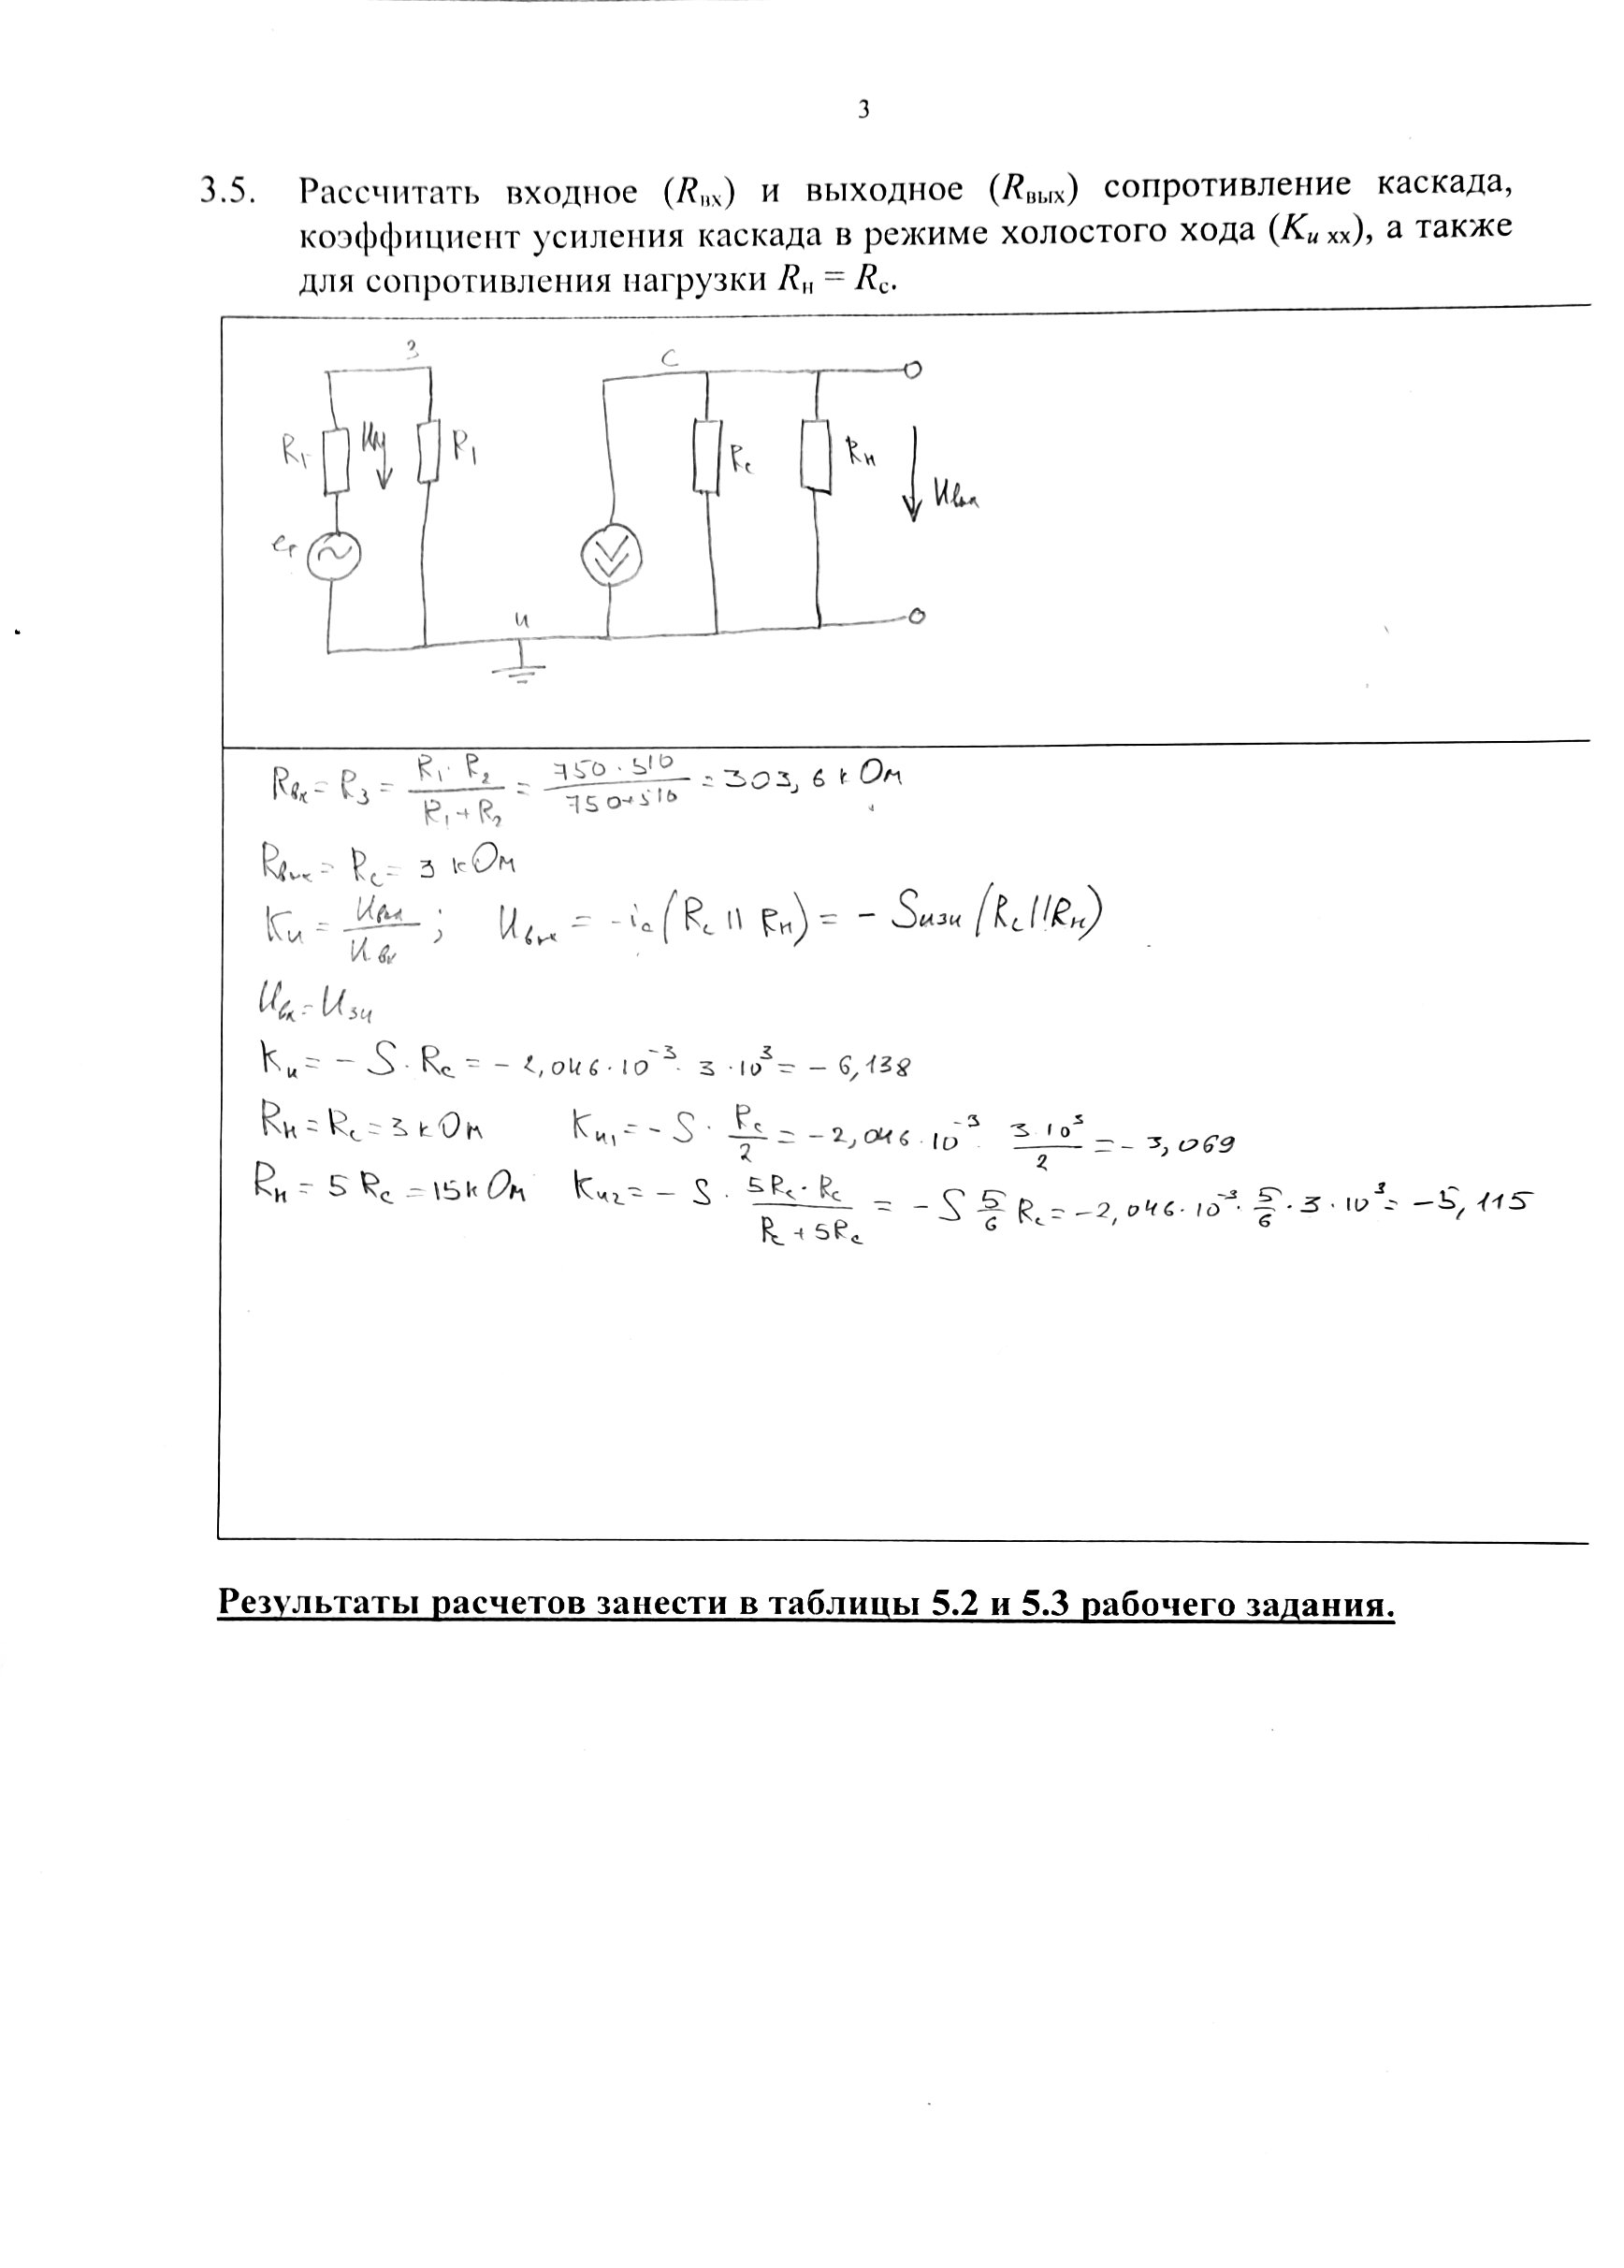 3
3.5. Рассчитать входное (Rвх) и выходное (Rвых) сопротивление каскада,
коэффициент усиления каскада в режиме холостого хода (Kи хх), а также
для сопротивления нагрузки Rн = Rс.
З
С
Rг
R1
Rс
Rн
Uвых
eг
И
Rвх = RЗ = R1 · R2 / R1 + R2 = 750 · 510 / 750+510 = 303,6 кОм
Rвых = Rс = 3 кОм
Kи = Uвых / Uвх ; Uвых = -iс (Rс || Rн) = - Sизи (Rс || Rн)
Uвх = Uзи
Kи = - S · Rс = - 2,046 · 10⁻³ · 3 · 10³ = - 6,138
Rн = Rс = 3 кОм Kи1 = - S · Rс / 2 = - 2,046 · 10⁻³ · 3 · 10³ / 2 = - 3,069
Rн = 5 Rс = 15 кОм Kи2 = - S · 5Rс · Rс / Rс + 5Rс = - S 5/6 Rс = - 2,046 · 10⁻³ · 5/6 · 3 · 10³ = - 5,115
Результаты расчетов занести в таблицы 5.2 и 5.3 рабочего задания.